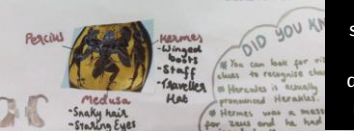 Percius
Hermes
-Winged
boots
-Staff
-Traveller
Hat
Medusa
-Snaky hair
-Staring Eyes
DID YOU KN
You can look for
clues to recognise
Hercules is actually
pronounced Herakles.
Hermes was a
for Zeus and he had
s